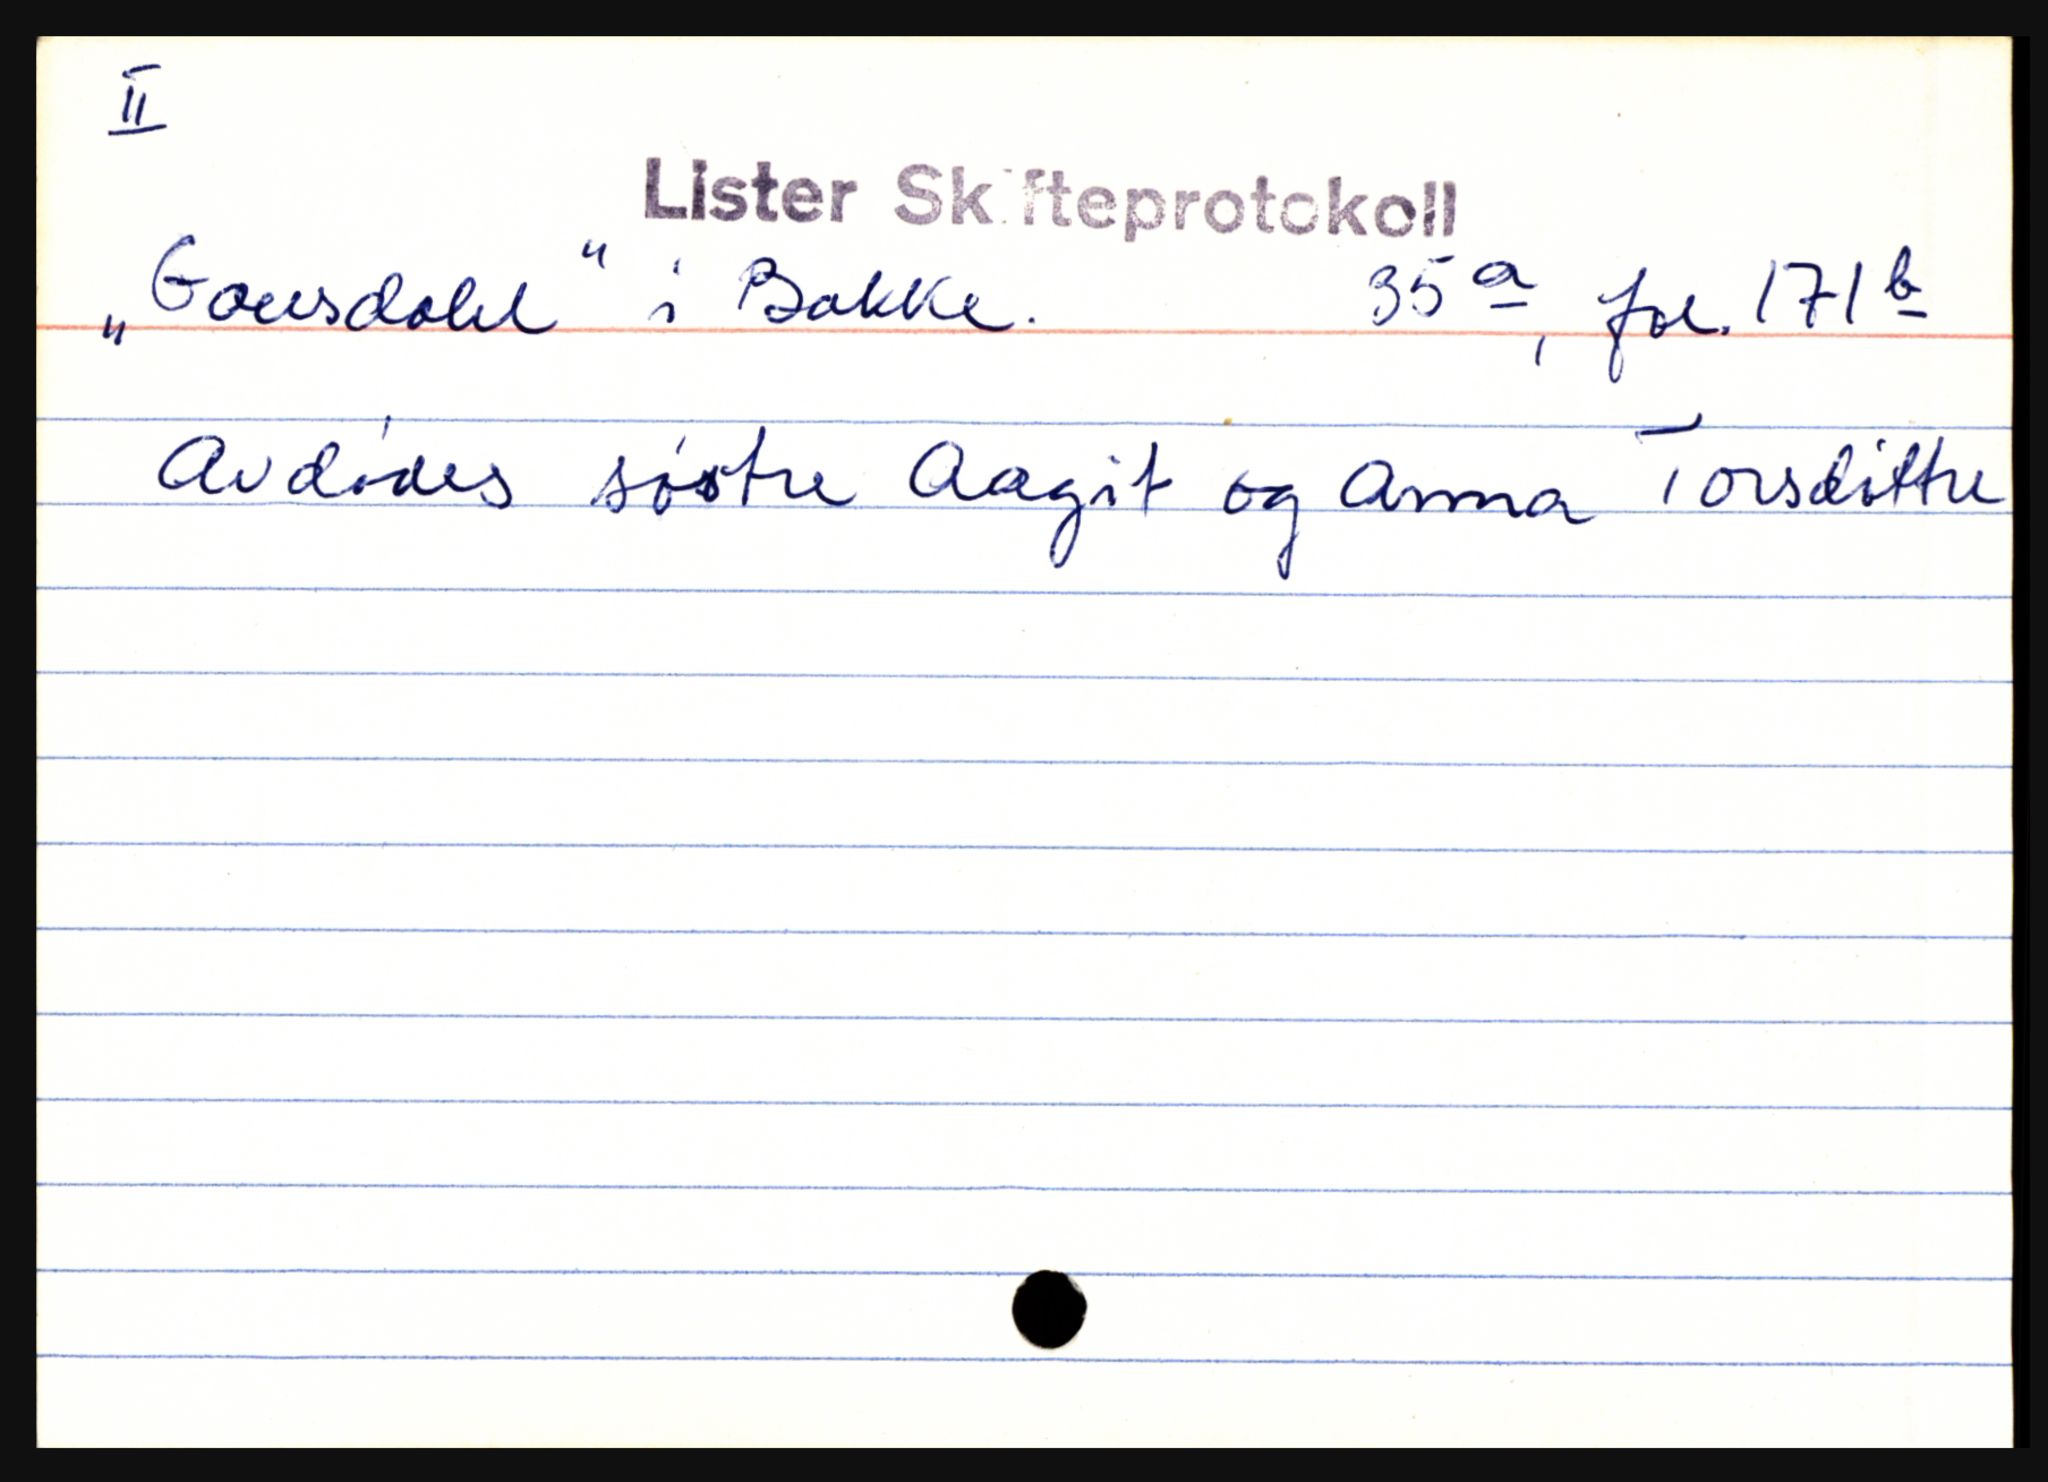 II
Lister Skifteprotokoll
„Gousdahl“ i Bakke. 35a, fol. 171b
Avdødes søstre Aagit og Anna Torsdøttre